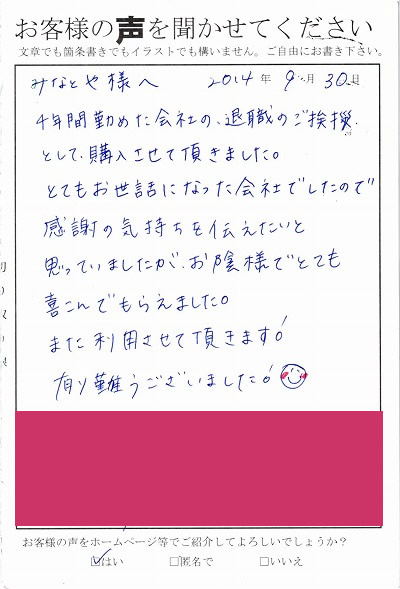 お客様の声を聞かせてください
文章でも箇条書きでもイラストでも構いません。ご自由にお書き下さい。
みなとや様へ 2014年 9月 30日
4年間勤めた会社の、退職のご挨拶
として、購入させて頂きました。
とてもお世話になった会社でしたので
感謝の気持ちを伝えたいと
思っていましたが、お陰様でとても
喜こんでもらえました。
また利用させて頂きます!
有り難うございました!
お客様の声をホームページ等でご紹介してよろしいでしょうか?
☑はい □匿名で □いいえ